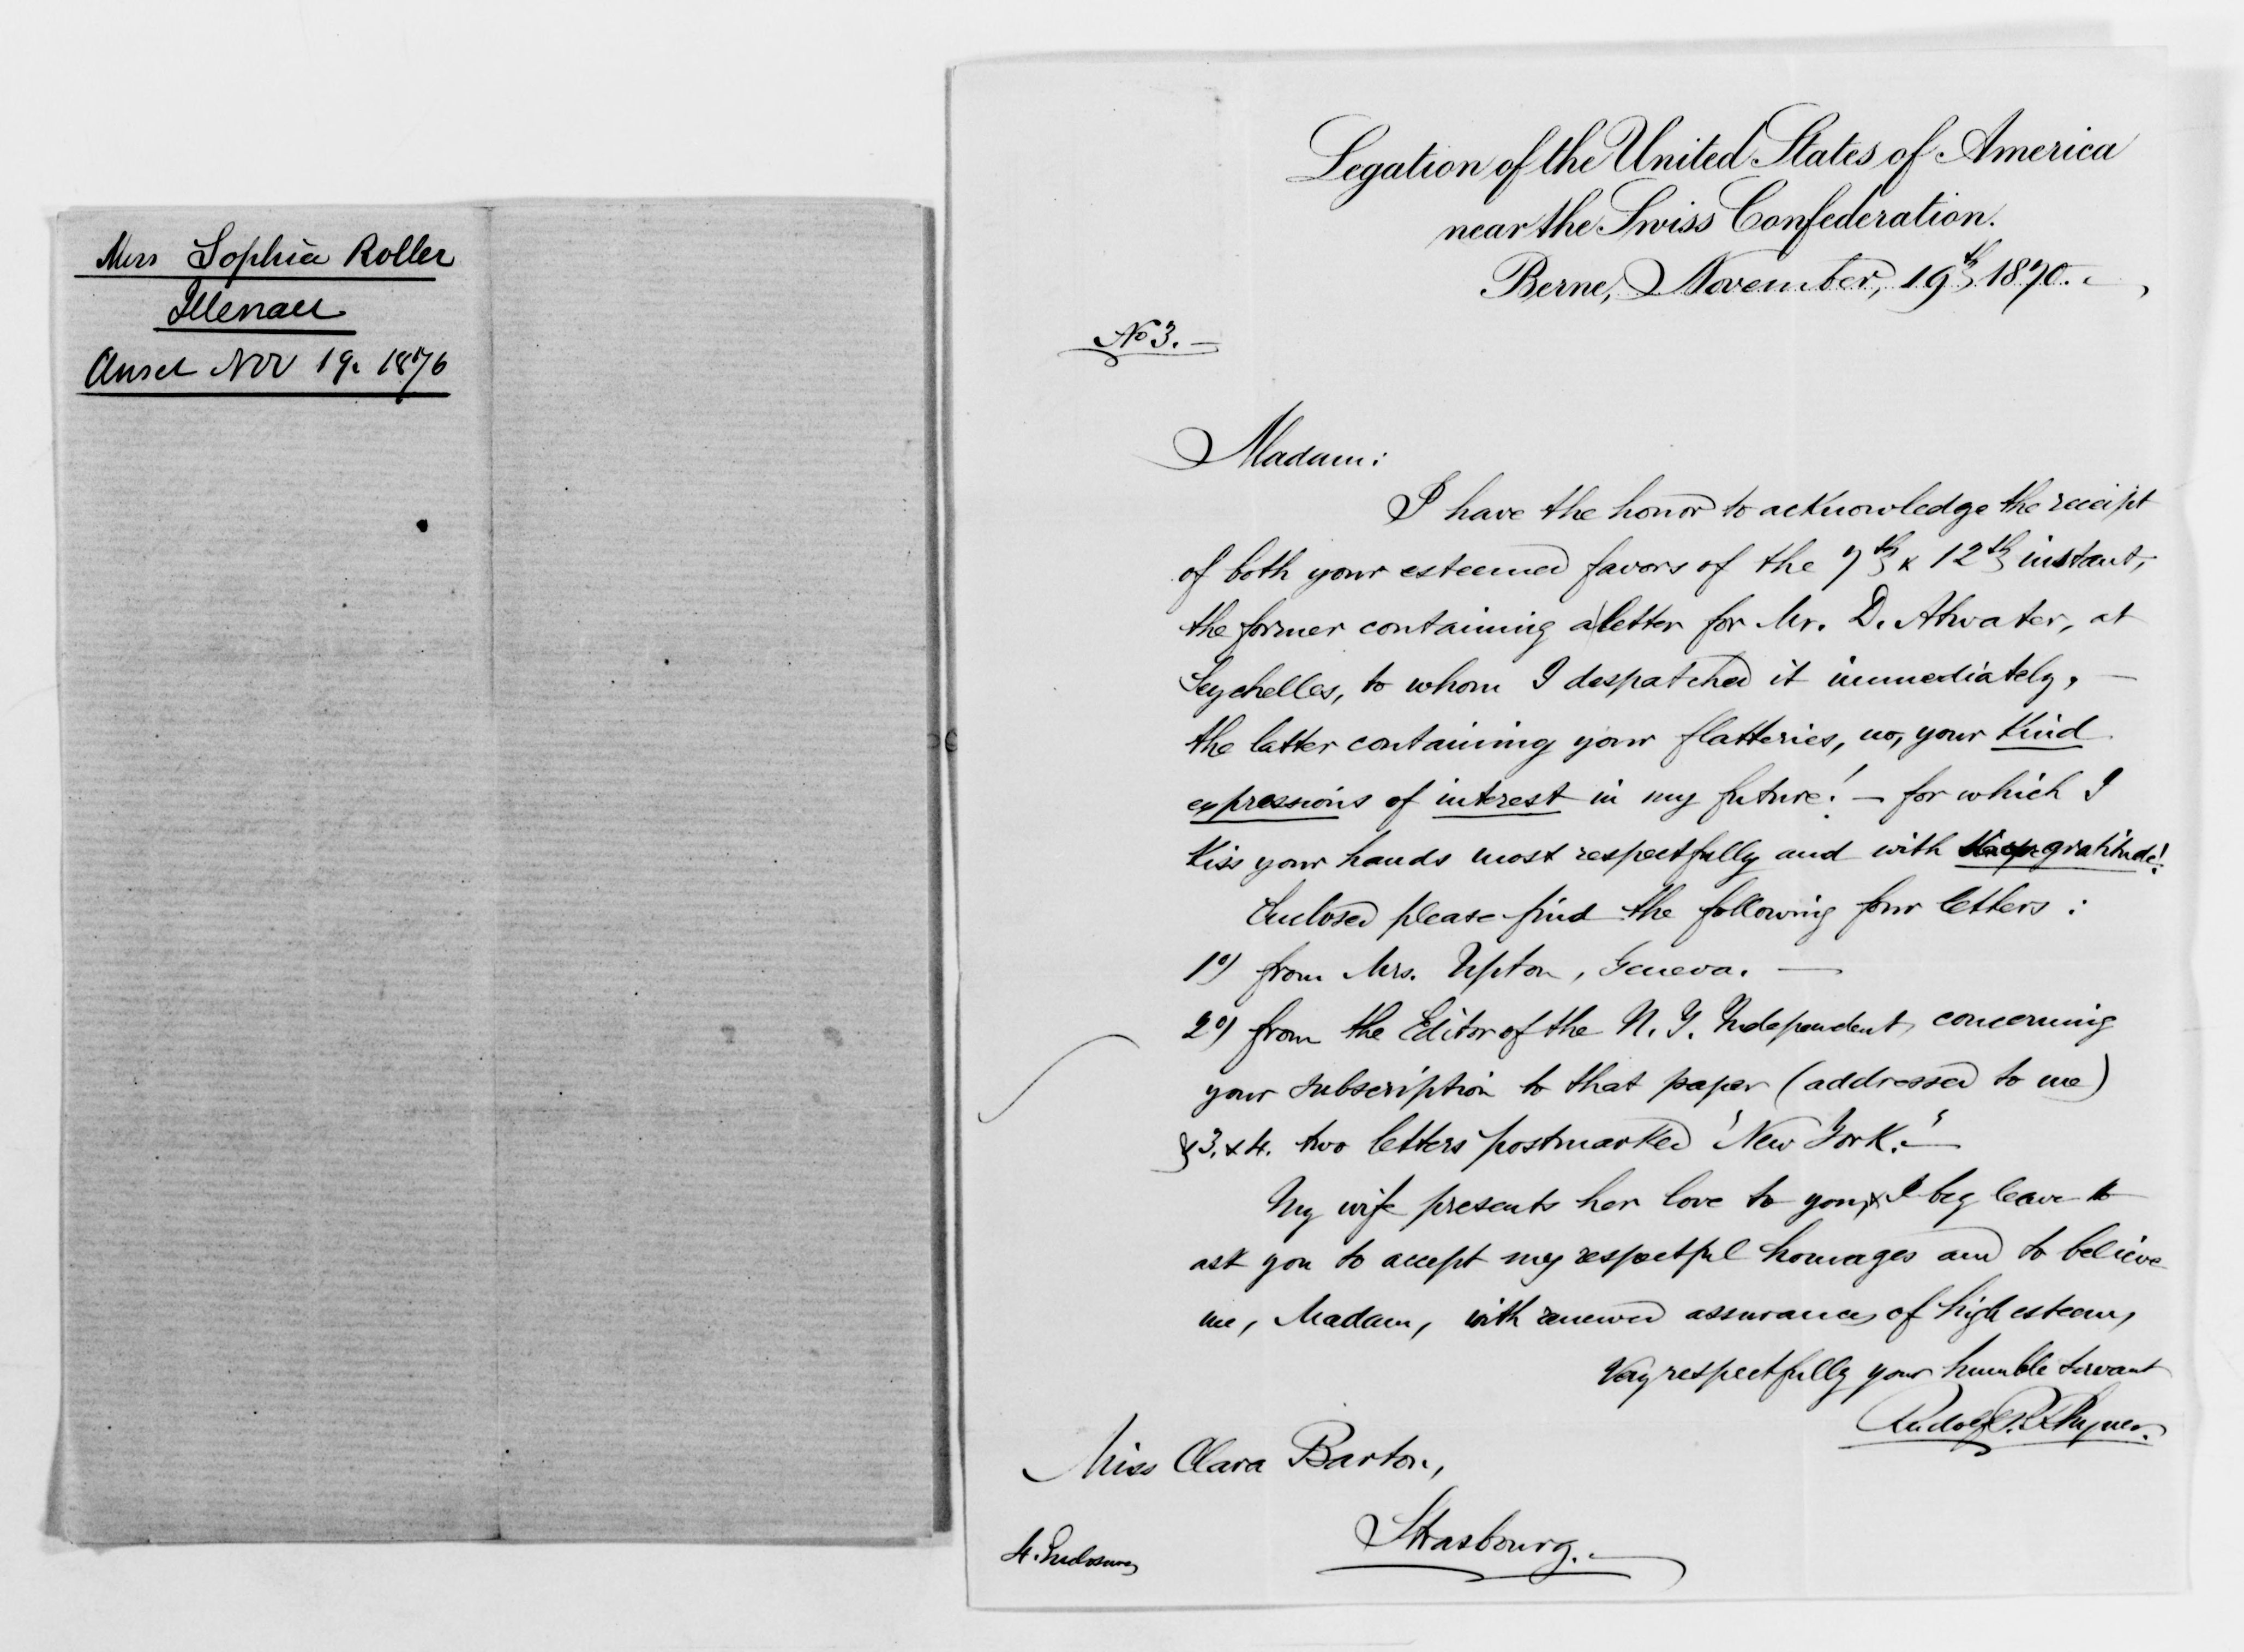 Miss Sophia Roller
Illenau
Ansd Nov 19. 1876
Legation of the United States of America
near the Swiss Confederation.
Berne, November, 19th, 1870.
No 3. —
Madam:
I have the honor to acknowledge the receipt
of both your esteemed favors of the 7th & 12th instant,
the former containing a letter for Mr. D. Atwater, at
Seychelles, to whom I despatched it immediately, —
the latter containing your flatteries, no, your kind
expressions of interest in my future! — for which I
Kiss your hands most respectfully and with gratitude!
Enclosed please find the following four letters :
1°) from Mrs. Upton, Geneva. —
2°) from the Editor of the N. Y. Independent, concerning
your subscription to that paper (addressed to me)
3. & 4. two letters postmarked "New York." —
My wife presents her love to you, & I beg leave to
ask you to accept my respectful homages and to believe
me, Madam, with renewed assurances of high esteem,
Very respectfully your humble servant
Rudolf
Miss Clara Barton,
Strasbourg. —
4. Enclosures